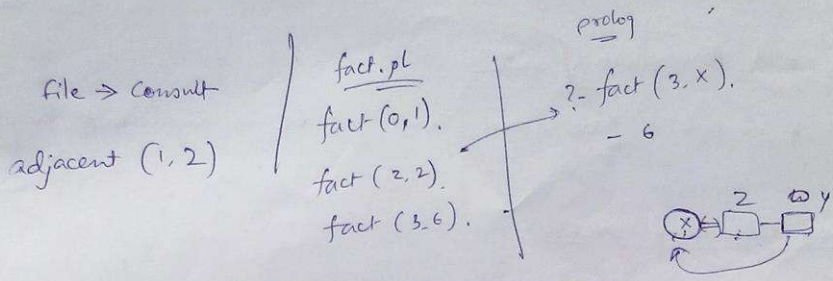 file → Consult
adjacent (1, 2)
fact.pl
fact (0,1).
fact (2,2).
fact (3,6).
prolog
?- fact (3, x).
- 6
x z y